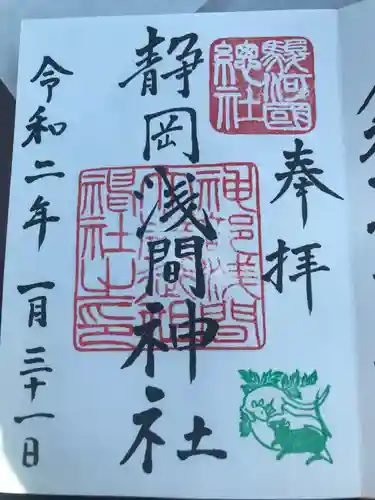 駿河國總社
奉拝
静岡浅間神社
令和二年一月三十一日